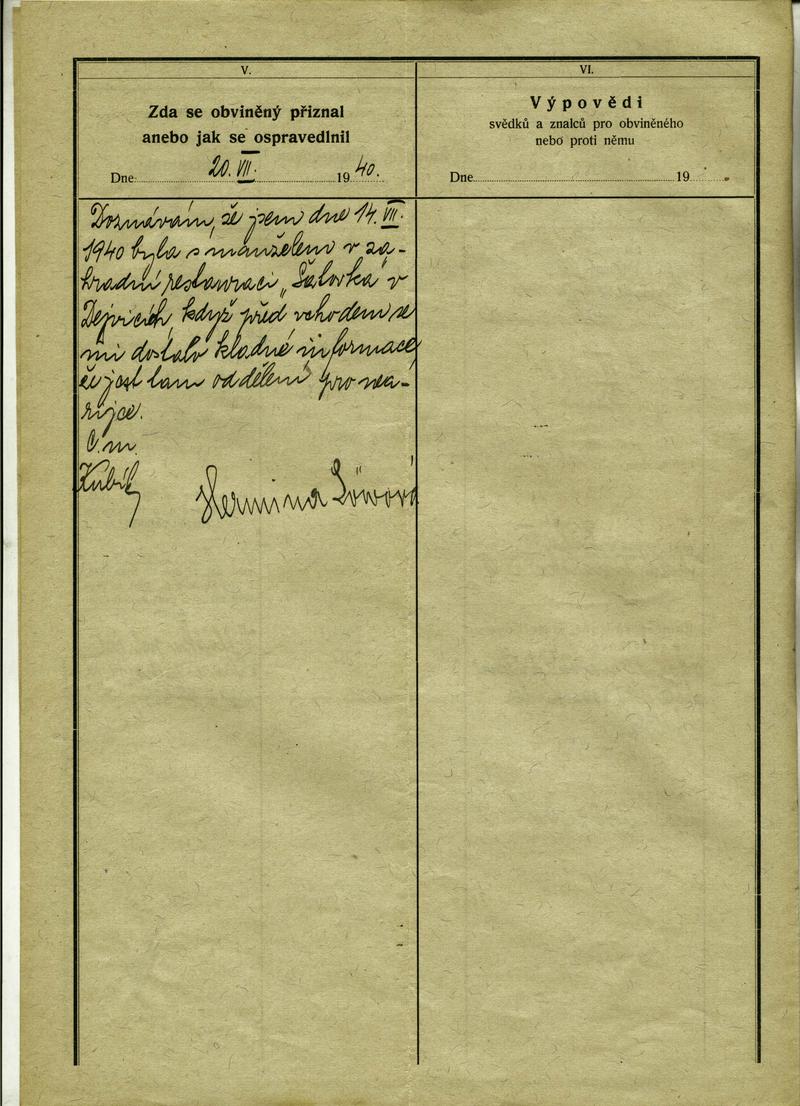 V.
Zda se obviněný přiznal
anebo jak se ospravedlnil
Dne 20. VII. 1940.
Doznávám, že jsem dne 14. VII.
1940 byla s manželem v za-
hradní restauraci „Šálovka" v
Dejvicích, když před vchodem se
mi dostalo kladné informace,
že jest tam oddělení pro nea-
rijce.
Č. m.
Kubík
Hermina
VI.
Výpovědi
svědků a znalců pro obviněného
nebo proti němu
Dne 19